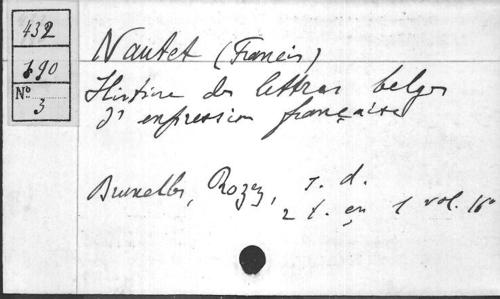 432
190
Nº
3
Nautet (Francis)
Histoire des lettres belges
d'expression française
Bruxelles, Rozez, s. d.
2 t. en 1 vol. 16º